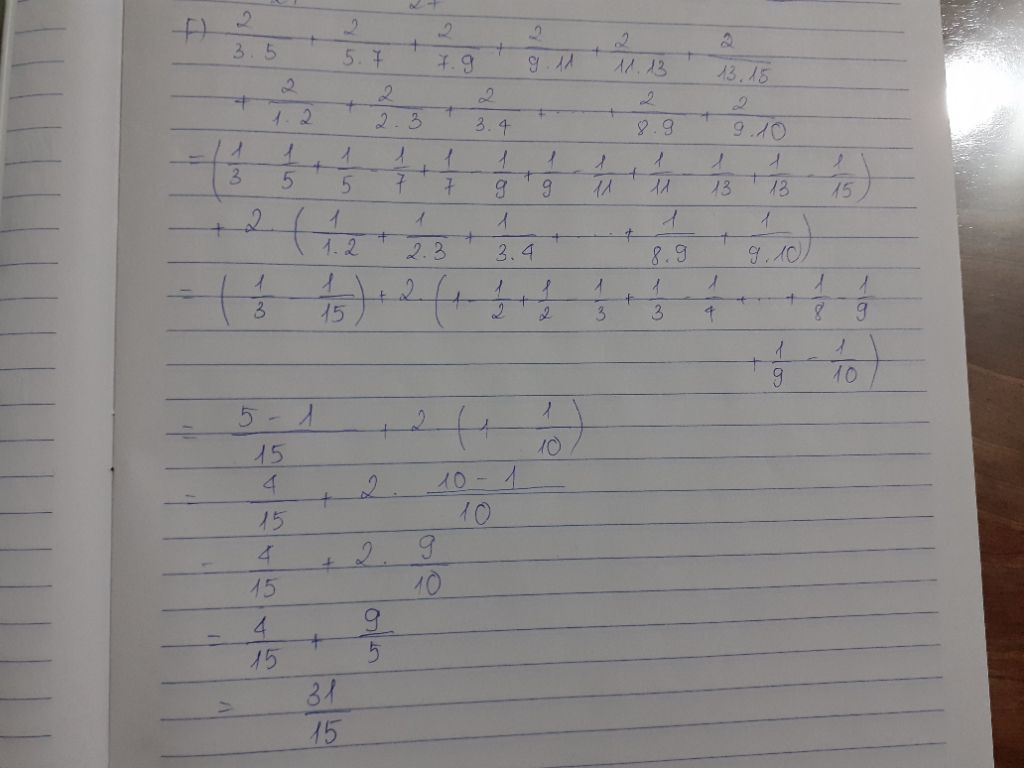 Г) 2/(3.5) + 2/(5.7) + 2/(7.9) + 2/(9.11) + 2/(11.13) + 2/(13.15)
+ 2/(1.2) + 2/(2.3) + 2/(3.4) + ... + 2/(8.9) + 2/(9.10)
= (1/3 - 1/5 + 1/5 - 1/7 + 1/7 - 1/9 + 1/9 - 1/11 + 1/11 - 1/13 + 1/13 - 1/15)
+ 2. (1/(1.2) + 1/(2.3) + 1/(3.4) + ... + 1/(8.9) + 1/(9.10))
= (1/3 - 1/15) + 2. (1 - 1/2 + 1/2 - 1/3 + 1/3 - 1/4 + ... + 1/8 - 1/9
+ 1/9 - 1/10)
= (5 - 1)/15 + 2. (1 - 1/10)
= 4/15 + 2. (10 - 1)/10
= 4/15 + 2. 9/10
= 4/15 + 9/5
= 31/15